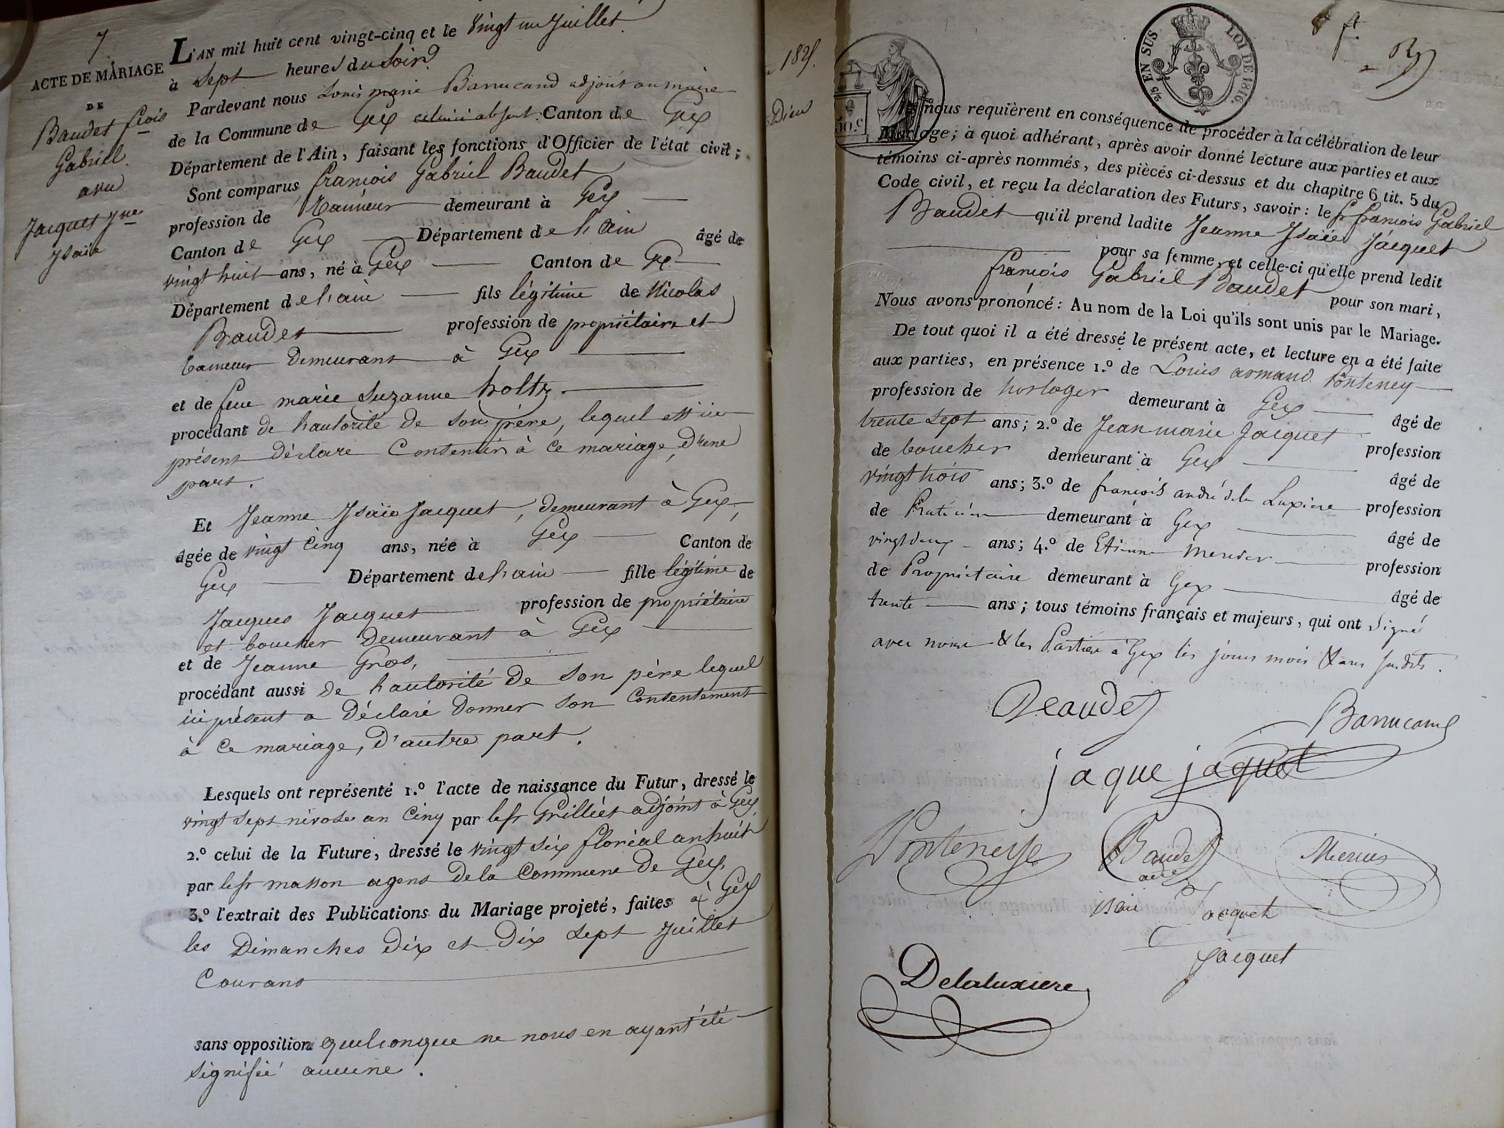 7
ACTE DE MARIAGE
DE
Baudet fcois
Gabriel
avec
Jacquet Jne
Isaïe
L'AN mil huit cent vingt-cinq et le vingt un Juillet
à sept heures du Soir
Pardevant nous Louis marie Barrucand adjoint au maire
de la Commune de Gex celui ci absent. Canton de Gex
Département de l'Ain, faisant les fonctions d'Officier de l'état civil;
Sont comparus françois Gabriel Baudet
profession de Tanneur demeurant à Gex
Canton de Gex Département de l'ain âgé de
vingt huit ans, né à Gex Canton de Gex
Département de l'ain fils légitime de Nicolas
Baudet profession de propriétaire et
tanneur demeurant à Gex
et de feue marie Suzanne holtz.
procédant de l'autorité de Son père, lequel est ici
présent déclare Consentir à ce mariage, d'une
part.
Et Jeanne Isaïe Jacquet, demeurant à Gex,
âgée de vingt cinq ans, née à Gex Canton de
Gex Département de l'ain fille légitime de
Jacques Jacquet profession de propriétaire
et boucher demeurant à Gex
et de Jeanne Gros,
procédant aussi de l'autorité de son père lequel
ici présent a déclaré donner son consentement
à ce mariage, d'autre part.
Lesquels ont représenté 1.º l'acte de naissance du Futur, dressé le
vingt sept nivose an cinq par le sr Grilliet adjoint à Gex
2.º celui de la Future, dressé le vingt six floréal an huit
par le sr masson agent de la Commune de Gex,
3.º l'extrait des Publications du Mariage projeté, faites à Gex
les Dimanches dix et dix sept Juillet
Courant
sans opposition quelconque ne nous en ayant été
signifié aucune.
1825.
Dieu
50.c
EN SUS
LOI DE 1816.
nous requièrent en conséquence de procéder à la célébration de leur
Mariage; à quoi adhérant, après avoir donné lecture aux parties et aux
témoins ci-après nommés, des pièces ci-dessus et du chapitre 6 tit. 5 du
Code civil, et reçu la déclaration des Futurs, savoir: le sr françois Gabriel
Baudet qu'il prend ladite Jeanne Isaïe Jacquet
pour sa femme, et celle-ci qu'elle prend ledit
françois Gabriel Baudet pour son mari,
Nous avons prononcé: Au nom de la Loi qu'ils sont unis par le Mariage.
De tout quoi il a été dressé le présent acte, et lecture en a été faite
aux parties, en présence 1.º de Louis armand Ponteney
profession de horloger demeurant à Gex âgé de
trente sept ans; 2.º de Jean marie Jacquet profession
de boucher demeurant à Gex âgé de
vingt trois ans; 3.º de françois andré de la Luxiere profession
de Praticien demeurant à Gex âgé de
vingt deux ans; 4.º de Etienne Mercier profession
de Propriétaire demeurant à Gex âgé de
trente ans; tous témoins français et majeurs, qui ont signé
avec nous & les Parties à Gex les jour mois & an susdits.
Beaudet
Barrucand
jaque jaquet
Ponteneyse
Baudet
Mercier
Isaïe Jacquet
Jacquet
Delaluxiere